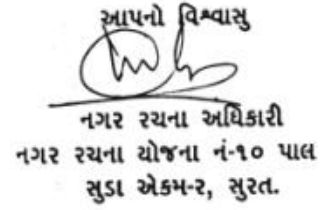 આપનો વિશ્વાસુ
નગર રચના અધિકારી
નગર રચના યોજના નં-૧૦ પાલ
સુડા એકમ-ર, સુરત.